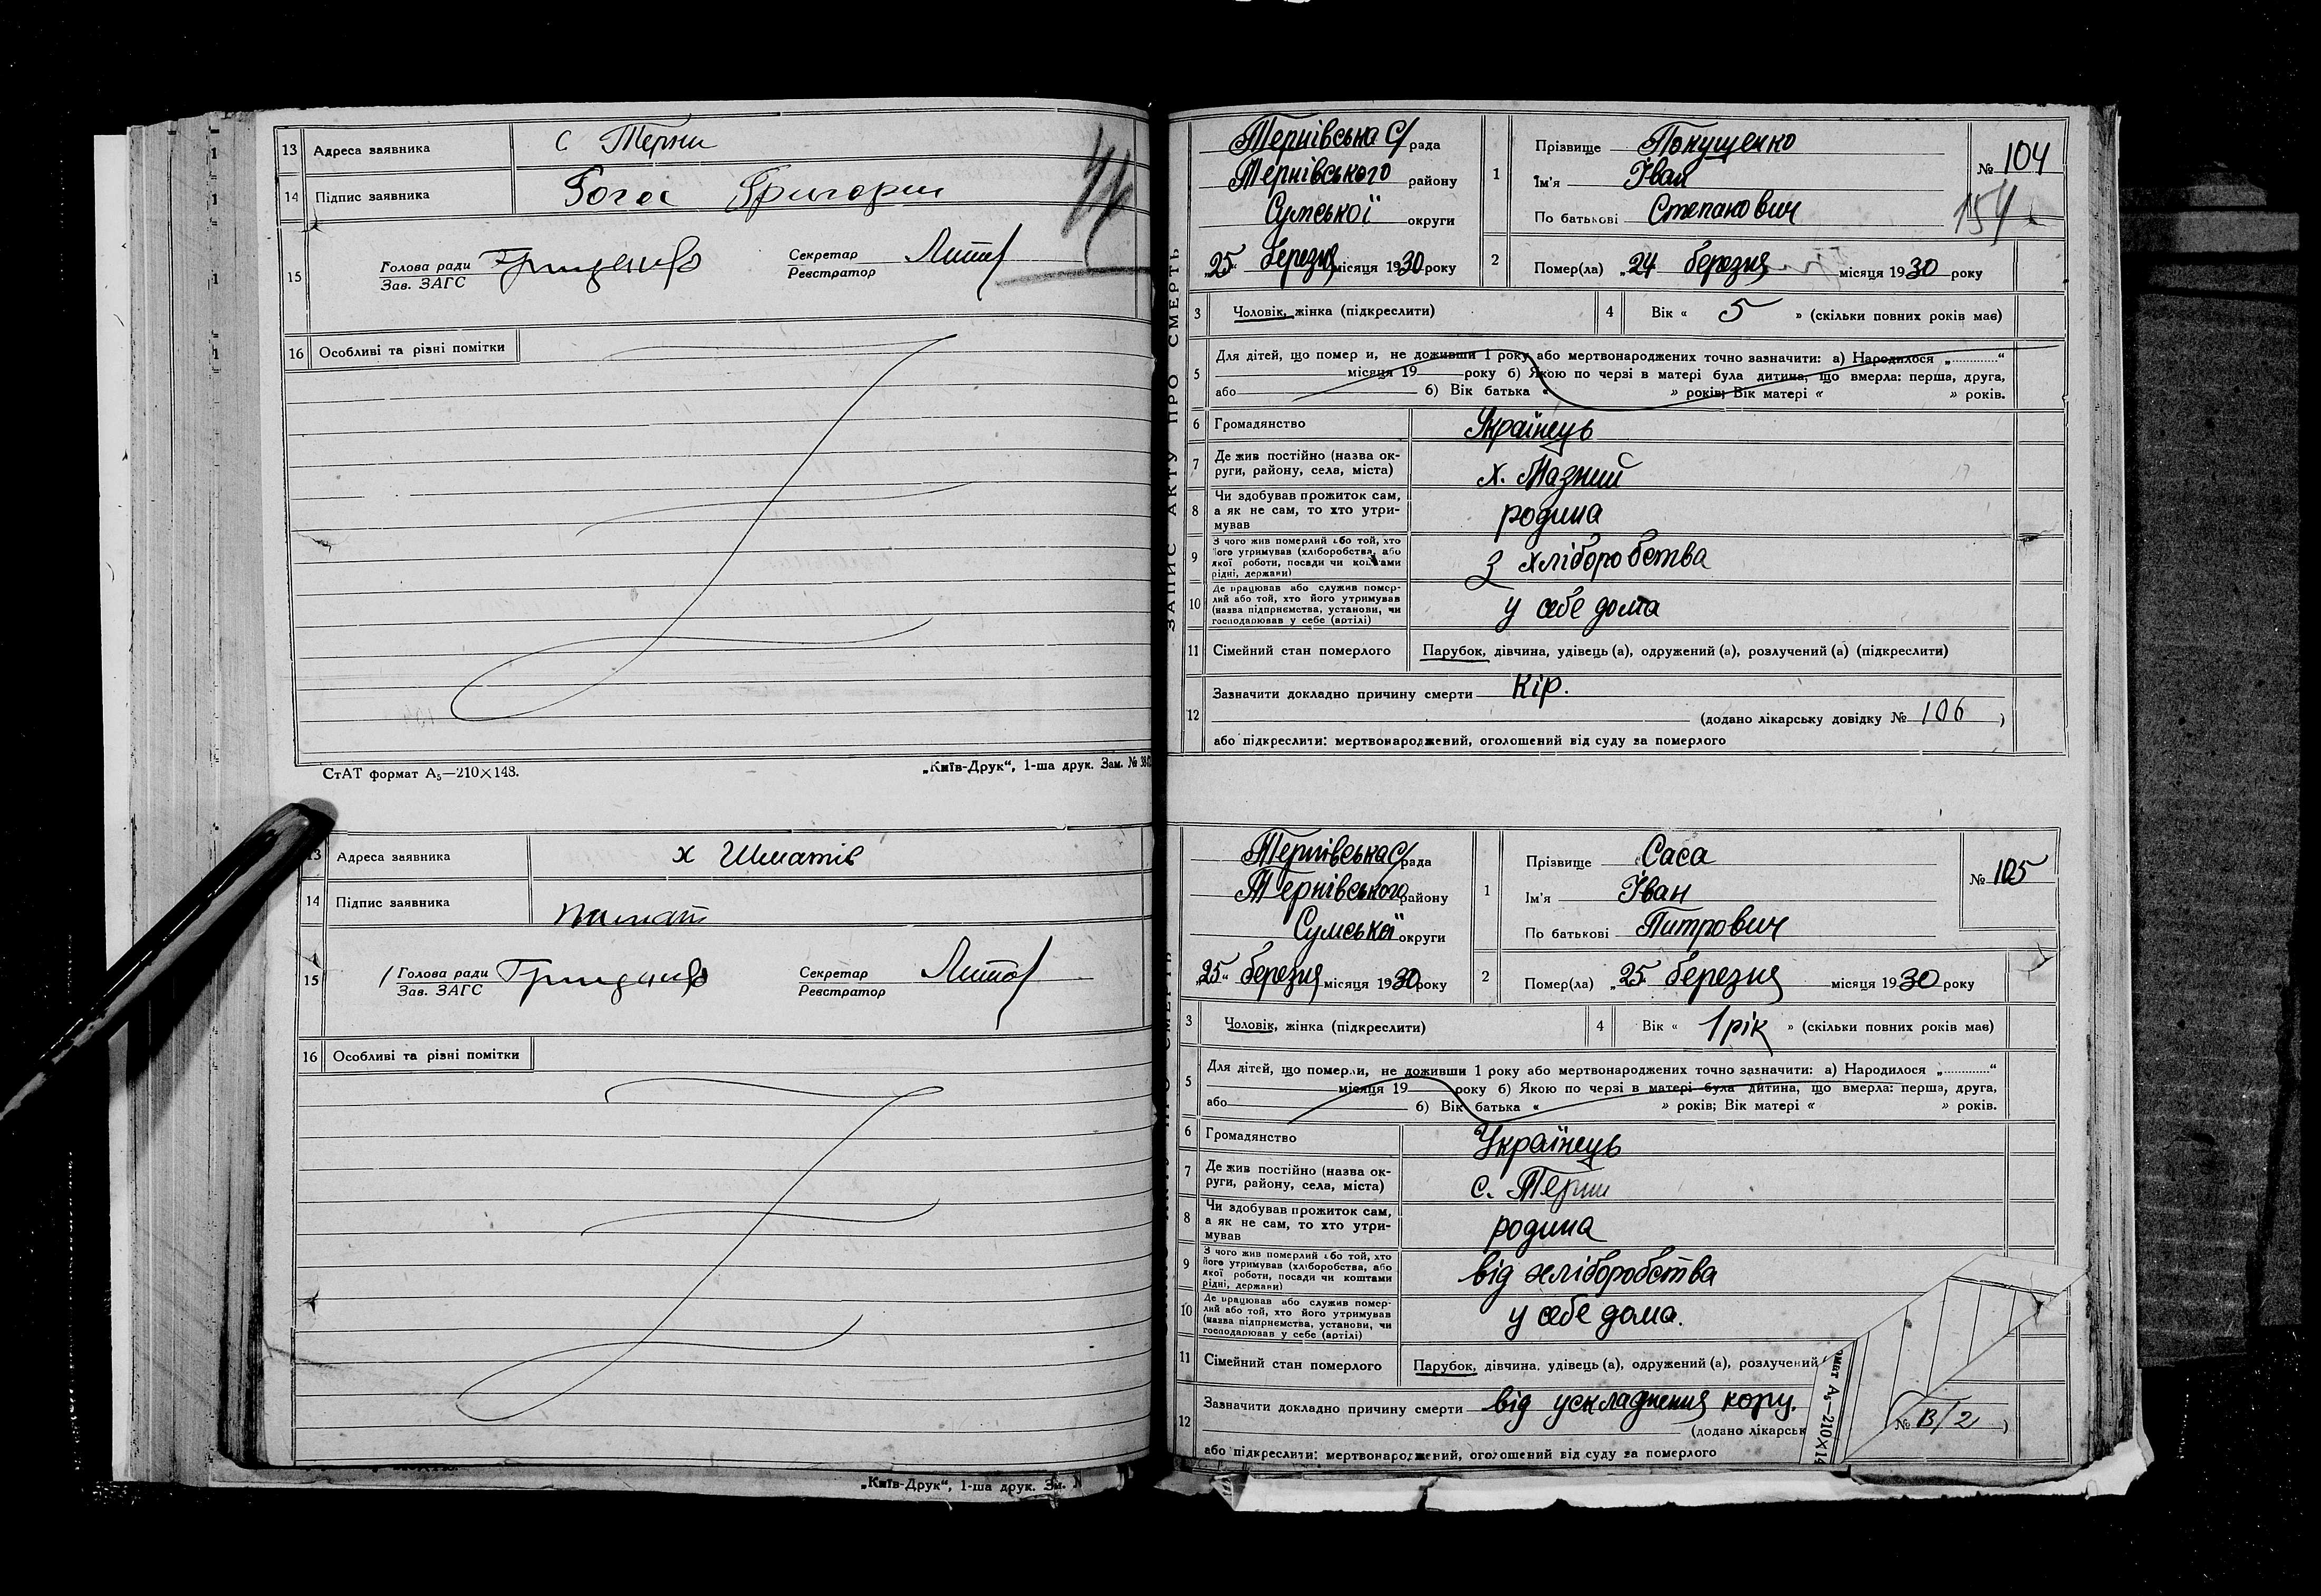 13 Адреса заявника с Терни
14 Підпис заявника Рогос Григорий
15 Голова ради Грищенко Секретар
Зав. ЗАГС Реєстратор
16 Особливі та різні помітки
СтАТ формат А₅—210×148. „Київ-Друк“, 1-ша друк. Зам. №
13 Адреса заявника х Шматів
14 Підпис заявника
15 Голова ради Грищенко Секретар
Зав. ЗАГС Реєстратор
16 Особливі та різні помітки
„Київ-Друк“, 1-ша друк. Зм. N
ЗАПИС АКТУ ПРО СМЕРТЬ
Тернівська С/рада
Тернівського району
Сумської округи
„25“ березня місяця 1930 року
1 Прізвище Покущенко
Ім'я Іван
По батькові Степанович
№ 104
154
2 Помер(ла) „24 березня місяця 1930 року
3 Чоловік, жінка (підкреслити) 4 Вік « 5 » (скільки повних років має)
5 Для дітей, що помер и, не доживши 1 року або мертвонароджених точно зазначити: а) Народилося „............“
місяця 19 року б) Якою по черзі в матері була дитина, що вмерла: перша, друга,
або б) Вік батька « » років; Вік матері « » років.
6 Громадянство Українець
7 Де жив постійно (назва ок-
руги, району, села, міста) х. Мазний
8 Чи здобував прожиток сам,
а як не сам, то хто утри-
мував родина
9 З чого жив померлий або той, хто
його утримував (хліборобства, або
якої роботи, посади чи коштами
рідні, держави) З хліборобства
10 Де працював або служив помер-
лий або той, хто його утримував
(назва підприємства, установи, чи
господарював у себе (артілі) у себе дома
11 Сімейний стан померлого Парубок, дівчина, удівець (а), одружений (а), розлучений (а) (підкреслити)
12 Зазначити докладно причину смерти Кір.
(додано лікарську довідку № 106 )
або підкреслити: мертвонароджений, оголошений від суду за померлого
Тернівська С/рада
Тернівського району
Сумської округи
„25“ березня місяця 1930 року
1 Прізвище Саса
Ім'я Іван
По батькові Питрович
№ 105
2 Помер(ла) „25 березня місяця 1930 року
3 Чоловік, жінка (підкреслити) 4 Вік « 1 рік » (скільки повних років має)
5 Для дітей, що померли, не доживши 1 року або мертвонароджених точно зазначити: а) Народилося „............“
місяця 19 року б) Якою по черзі в матері була дитина, що вмерла: перша, друга,
або б) Вік батька « » років; Вік матері « » років.
6 Громадянство Українець
7 Де жив постійно (назва ок-
руги, району, села, міста) с. Терни
8 Чи здобував прожиток сам,
а як не сам, то хто утри-
мував родина
9 З чого жив померлий або той, хто
його утримував (хліборобства, або
якої роботи, посади чи коштами
рідні, держави) від хліборобства
10 Де працював або служив помер-
лий або той, хто його утримував
(назва підприємства, установи, чи
господарював у себе (артілі) у себе дома.
11 Сімейний стан померлого Парубок, дівчина, удівець (а), одружений (а), розлучений
12 Зазначити докладно причину смерти від ускладнення кору.
(додано лікарськ № В/2 )
або підкреслити: мертвонароджений, оголошений від суду за померлого
омат А₅—210×14